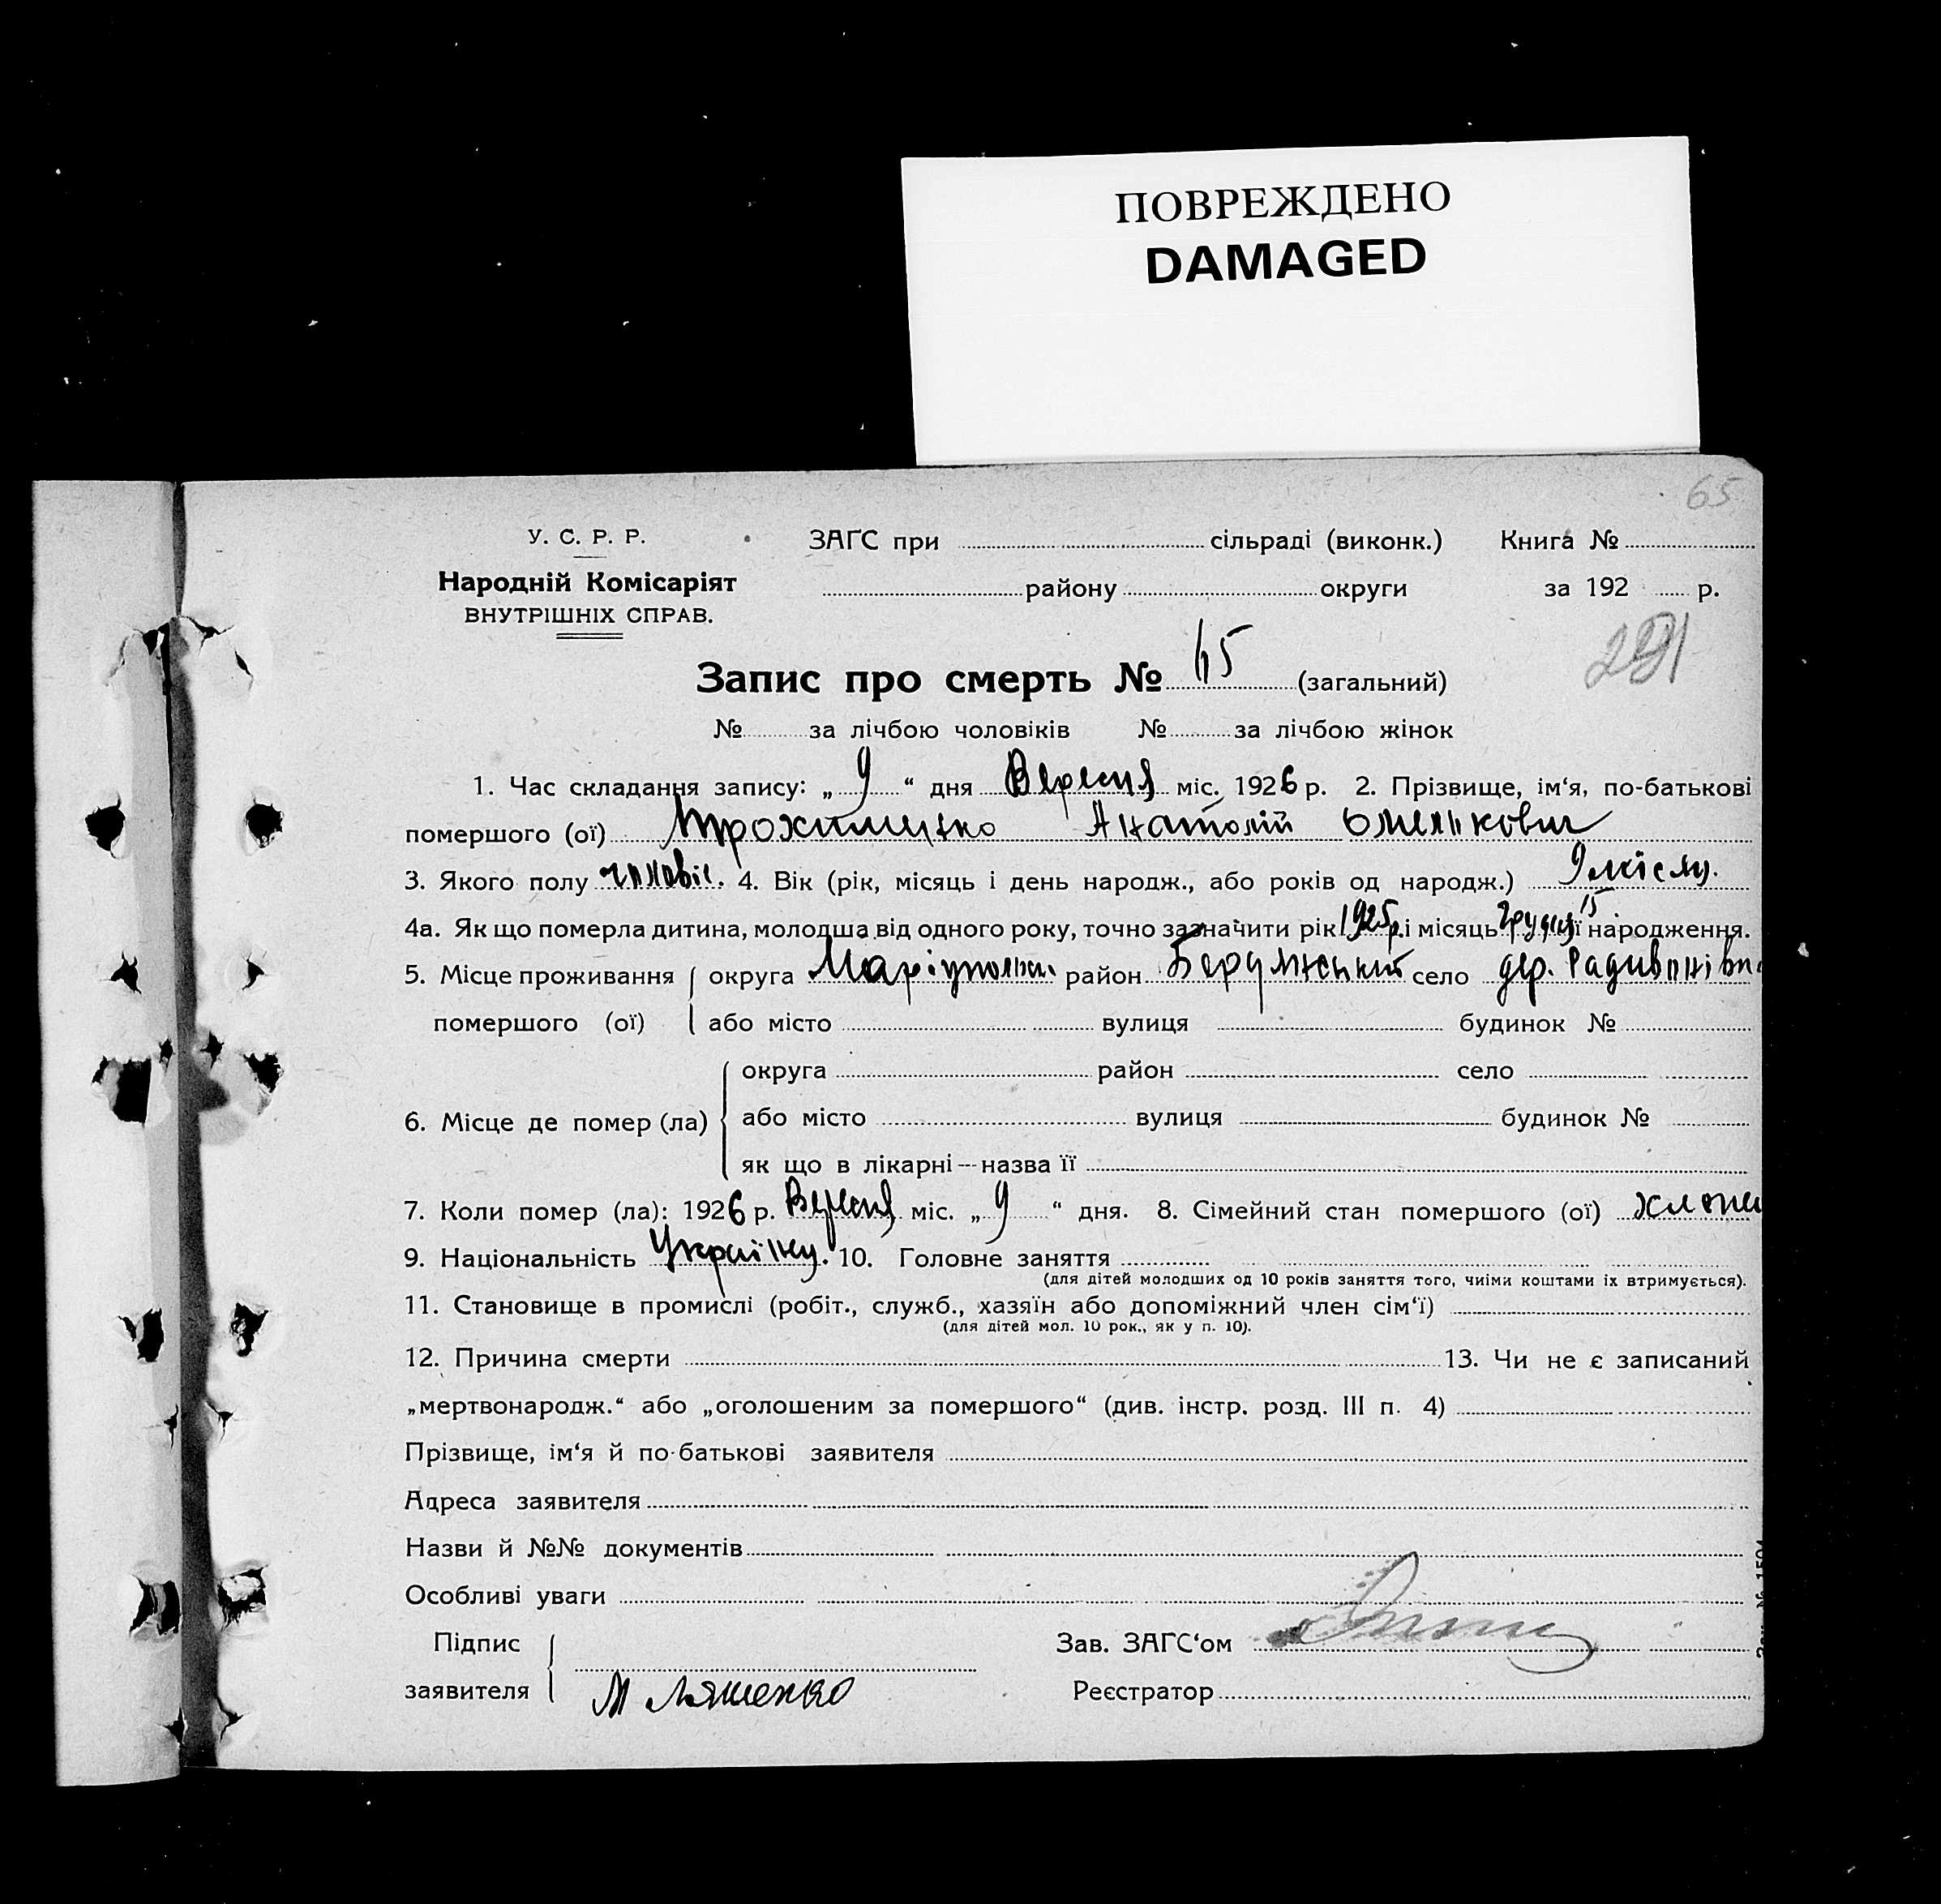 ПОВРЕЖДЕНО
DAMAGED
65
У. С. Р. Р. ЗАГС при сільраді (виконк.) Книга №
Народній Комісаріят району округи за 192 р.
ВНУТРІШНІХ СПРАВ.
Запис про смерть № 65 (загальний)
№ за лічбою чоловіків № за лічбою жінок
1. Час складання запису: „ 9 “ дня Вересня міс. 1926 р. 2. Прізвище, ім‘я, по-батькові
помершого (ої) Трохименко Анатолій Омелькович
3. Якого полу чоловіч. 4. Вік (рік, місяць і день народж., або років од народж.) 9 місяц.
4а. Як що померла дитина, молодша від одного року, точно зазначити рік 1925 р. і місяць грудня 15 її народження.
5. Місце проживання округа Маріупольськ. район село дер. Радивонівк
помершого (ої) або місто вулиця будинок №
округа район село
6. Місце де помер (ла) або місто вулиця будинок №
як що в лікарні—назва її
7. Коли помер (ла): 1926 р. Вересня міс. „ 9 “ дня. 8. Сімейний стан помершого (ої) хлопец
9. Національність Українец. 10. Головне заняття
(для дітей молодших од 10 років заняття того, чиїми коштами їх втримується).
11. Становище в промислі (робіт., служб., хазяїн або допоміжний член сім‘ї)
(для дітей мол. 10 рок., як у п. 10).
12. Причина смерти 13. Чи не є записаний
„мертвонародж.“ або „оголошеним за помершого“ (див. інстр. розд. III п. 4)
Прізвище, ім‘я й по-батькові заявителя
Адреса заявителя
Назви й №№ документів
Особливі уваги
Підпис Зав. ЗАГС‘ом
заявителя М Ляшенко Реєстратор